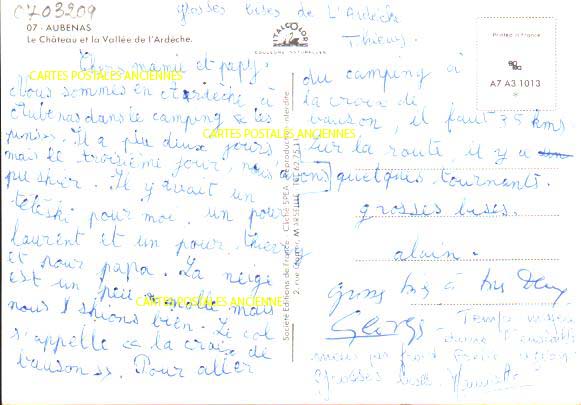 C703209
grosses bises de L'Ardèche
Thierry
07 - AUBENAS
Le Château et la Vallée de l'Ardèche.
ITALCOLOR
COULEURS NATURELLES
Printed in France
A7 A3 1013
Chers mamie et papy.
CARTES POSTALES ANCIENNES
Nous sommes en Ardèche à
Aubenas dans le camping « les
pins ». Il a plu deux jours
mais le troisième jour, nous
pu skier. Il y avait un
téléski pour moi. un pour
laurent et un pour thierry
et pour papa. La neige
est un peu molle mais
nous skions bien. Le col
s'appelle « la croix de
bauson ». Pour aller
du camping à
la croix de
bauson, il faut 35 kms
CARTES POSTALES ANCIENNES
sur la route il y a
quelques tournants.
grosses bises.
alain.
gros bis à tous Deux
Georges
Temps
dans l'ensemble
pas froid
Grosses bises.
CARTES POSTALES ANCIENNES
Société Editions de France Cliché SPEA Reproduction interdite
2, rue MARSEILLE